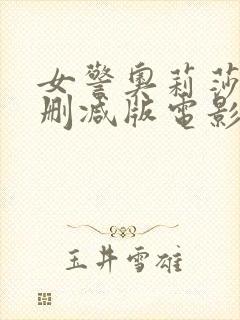 女警奥莉莎
删减版电影
玉井雪雄